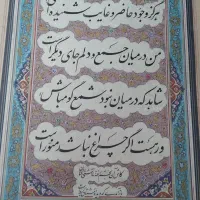 هرگز وجود حاضر و غایب شنیده‌ای
من در میان جمع و دلم جای دیگر است
شاید که در میان نبود شمع گو مباش
ور هست اگر چراغ نباشد منور است